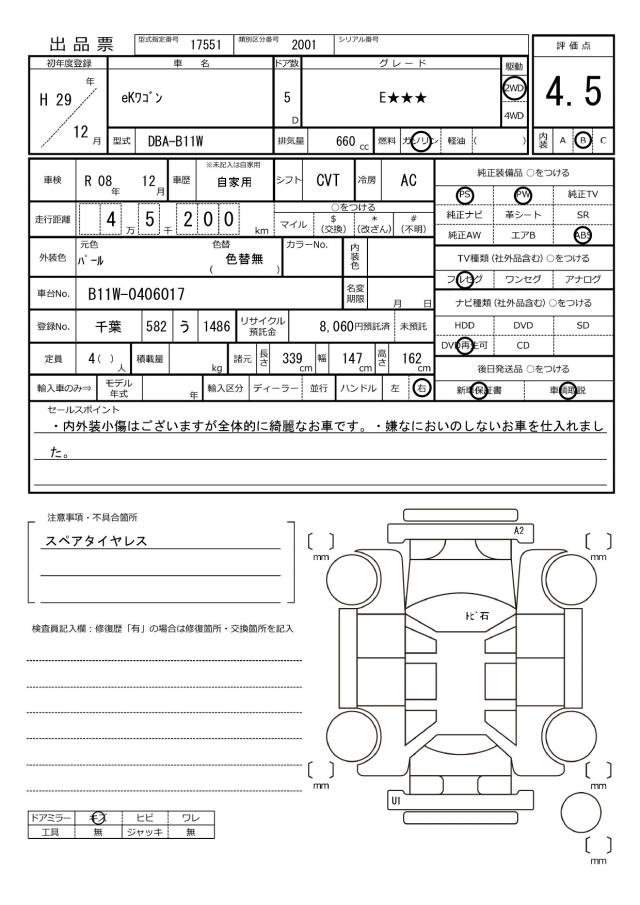 出品票 型式指定番号 17551 類別区分番号 2001 シリアル番号
評価点
4.5
内装 A B C
初年度登録 車名 ドア数 グレード 駆動
H 29 年 12 月
eKワゴン 5 D E★★★ 2WD
4WD
型式 DBA-B11W 排気量 660 cc 燃料 ガソリン 軽油 ( )
車検 R 08 年 12 月 車歴 ※未記入は自家用 自家用 シフト CVT 冷房 AC
走行距離 4 万 5 千 2 0 0 km ○をつける
マイル $ (交換) * (改ざん) # (不明)
外装色 元色 パール 色替 ( 色替無 ) カラーNo. 内装色
車台No. B11W-0406017 名変期限 月 日
登録No. 千葉 582 う 1486 リサイクル預託金 8,060円預託済 未預託
定員 4 ( ) 人 積載量 kg 諸元 長さ 339 cm 幅 147 cm 高さ 162 cm
輸入車のみ⇒ モデル年式 年 輸入区分 ディーラー 並行 ハンドル 左 右
純正装備品 ○をつける
PS PW 純正TV
純正ナビ 革シート SR
純正AW エアB ABS
TV種類 (社外品含む) ○をつける
フルセグ ワンセグ アナログ
ナビ種類 (社外品含む) ○をつける
HDD DVD SD
DVD再生可 CD
後日発送品 ○をつける
新車保証書 車輌取説
セールスポイント
・内外装小傷はございますが全体的に綺麗なお車です。・嫌なにおいのしないお車を仕入れまし
た。
注意事項・不具合箇所
スペアタイヤレス
検査員記入欄：修復歴「有」の場合は修復箇所・交換箇所を記入
ドアミラー キズ ヒビ ワレ
工具 無 ジャッキ 無
A2
mm mm
トビ石
mm mm
U1
mm